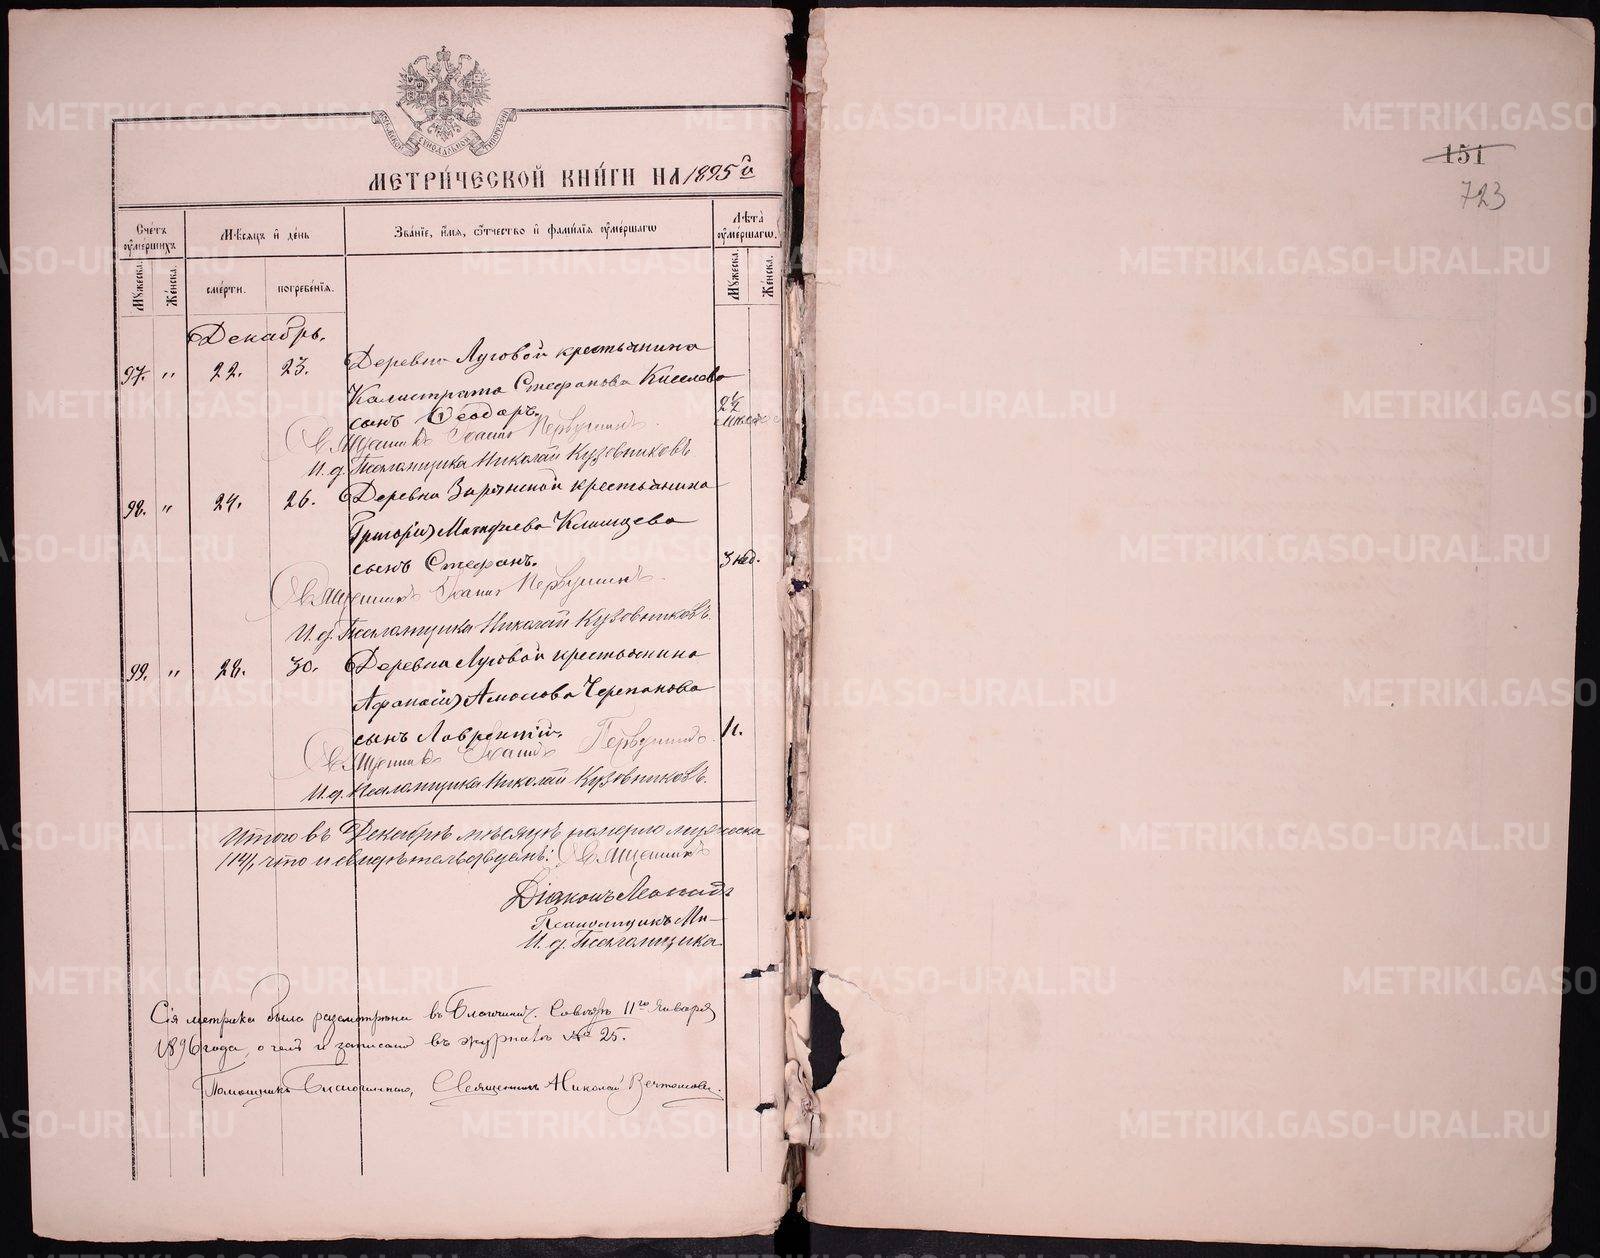 МЕТРИ́ЧЕСКОЙ КНИ́ГИ НА 1895й
Сче́тъ оу҆ме́ршихъ
Мѣ́сяцъ и҆ де́нь
Зва́нїе, и҆́мя, ѻ҆́тчество и҆ фами́лїя оу҆ме́ршагѡ
Лѣта̀ оу҆ме́ршагѡ.
Мꙋ́жеска.
Же́нска.
сме́рти.
погребе́нїя.
Мꙋ́жеска.
Же́нска.
Декабрь.
97. " 22. 23. Деревни Луговой крестьянина
Калистрата Стефанова Киселева
сынъ Ѳеодоръ.
Священникъ Іоаннъ Первушинъ.
И. д. Псаломщика Николай Кузовниковъ
98. " 24. 26. Деревни Зырянской крестьянина
Григорія Матфiева Клевцова
сынъ Стефанъ. 3 нед.
Священникъ Іоаннъ Первушинъ.
И. д. Псаломщика Николай Кузовниковъ.
99. " 28. 30. Деревни Луговой крестьянина
Афанасія Амосова Черепанова
сынъ Лаврентій.
Священникъ Іоаннъ Первушинъ.
И. д. Псаломщика Николай Кузовниковъ.
Итого въ Декабрѣ мѣсяцѣ померло мужеска
/14/, что и свидѣтельствуемъ: Священникъ
Діаконъ Леонидъ
Псаломщикъ Ми-
И. д. Псаломщика
Сія метрика была разсмотрѣна въ Благочин. Совѣтѣ 11го Января
1896 года, о чемъ и записано въ журналѣ № 25.
Помощникъ Благочиннаго, Священникъ Николай Вечтомовъ.
151
723
METRIKI.GASO-URAL.RU